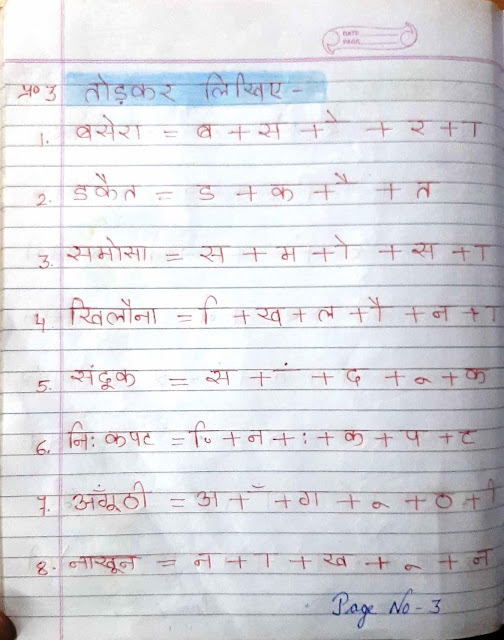 DATE
PAGE
प्र० 3 तोड़कर लिखिए -
1. बसेरा = ब + स + े + र + ा
2. डकैत = ड + क + ै + त
3. समोसा = स + म + ो + स + ा
4. खिलौना = ि + ख + ल + ौ + न + ा
5. संदूक = स + ं + द + ू + क
6. नि: कपट = ि + न + : + क + प + ट
7. अँगूठी = अ + ँ + ग + ू + ठ + ी
8. नाखून = न + ा + ख + ू + न
Page No - 3